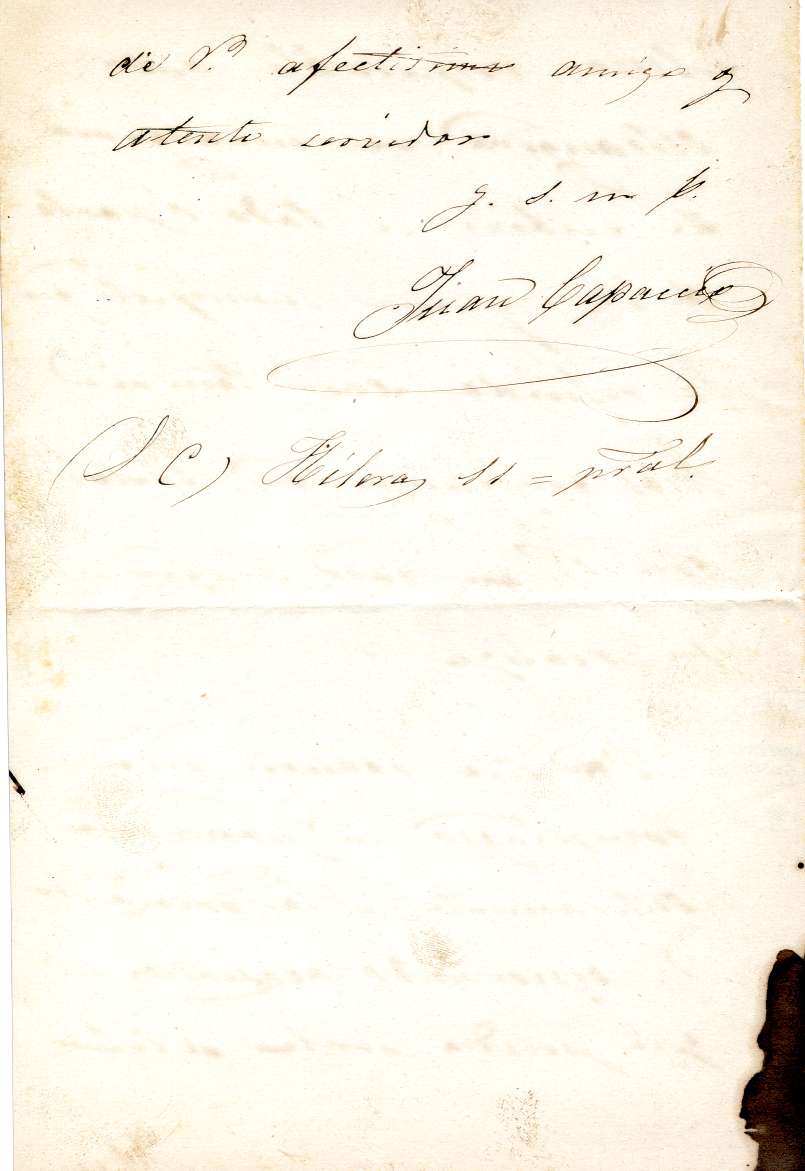 de V. afectisimo amigo y
atento servidor
q. s. m. b.
Juan Capaccio
(S C) Hileras 11 = pral.